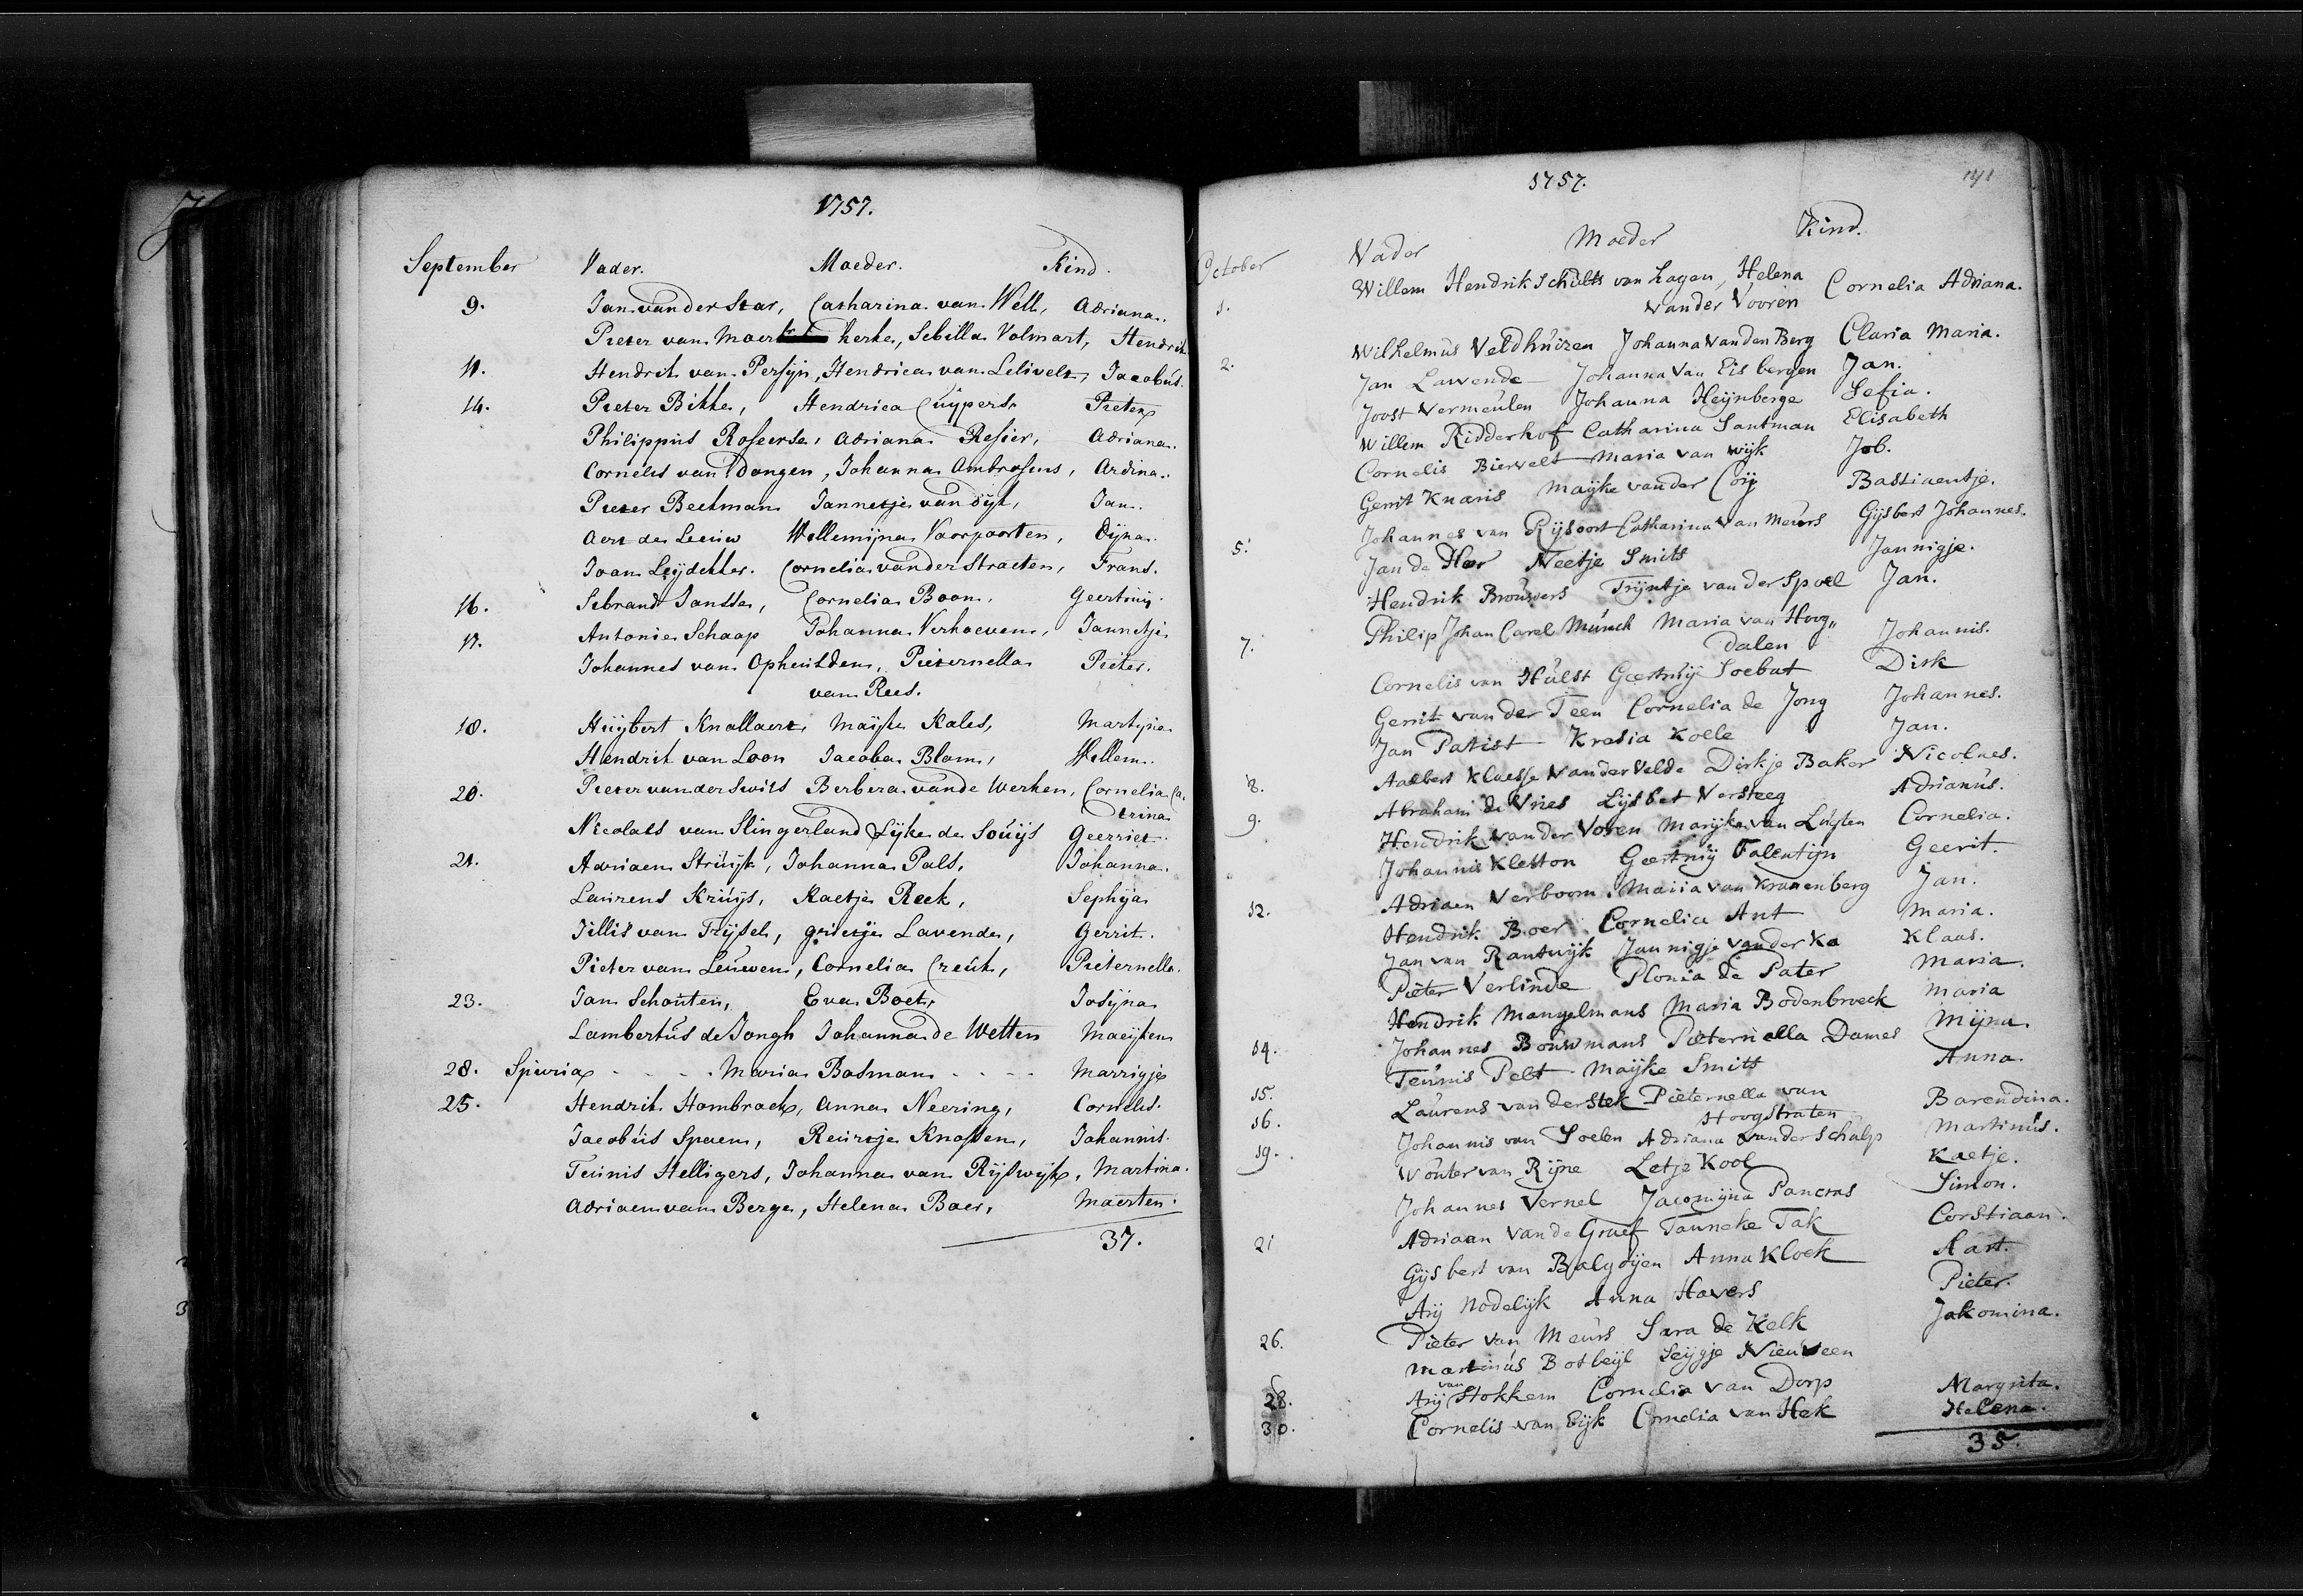 1757.
September Vader. Moeder. Kind.
9. Jan van der Star, Catharina van Well, Adriana.
Pieter van Moerkerke, Sebilla Volmart, Hendrik
11. Hendrik van Persijn, Hendrica van Lelivelt, Jacobus.
14. Pieter Bikker, Hendrica Cuijpers, Pieter
Philippus Roseerse, Adriana Resier, Adriana.
Cornelis van Dongen, Johanna Ambrosius, Ardina.
Pieter Beekman Jannetje van dijk, Jan.
Aert de Leeuw Willemijna Voorpoorten, Dijna.
Joan Leijdekker. Cornelia van der Straeten, Frans.
16. Sebrand Jansse, Cornelia Boon, Geertruij.
17. Antonie Schaap Johanna Verhoeven, Jannetje
Johannes van Opheusden, Pieternella Pieter.
van Rees.
18. Huijbert Knollaert Maijke Kales,
Hendrik van Loon Jacoba Blom, Willem.
20. Pieter van der Swits Berbera van de Werken, Cornelia Ca,
trina
Nicolaes van Slingerland Lijke de Souijs Geerriet.
21. Adriaen Struijk, Johanna Pals, Johanna.
Laurens Kruijs, Kaetje Reek, Sephija
Jillis van Trijsel, grietje Lavende, Gerrit.
Pieter van Leuwen, Cornelia Creuk, Pieternella.
23. Jan Schouten, Eva Boet, Josijna
Lambertus de Jongh Johanna de Wetten Maeijken
28. Spuria - - - Maria Bosman - - - Marrigje
25. Hendrik Hombroek, Anna Neering, Cornelis.
Jacobus Spaen, Reinsje Knossen, Johannis.
Teunis Helligers, Johanna van Rijswijk, Martina.
Adriaen van Berge, Helena Baer, Maerten.
37.
1757. 171
October Vader Moeder Kind.
1. Willem Hendrik Schults van Hagen, Helena Cornelia Adriana.
van der Vooren
Wilhelmus Veldhuizen Johanna van den Berg Claria Maria.
2. Jan Lavende Johanna van Eisbergen Jan.
Joost Vermeulen Johanna Heijnberge Sefia.
Willem Ridderhof Catharina Santman Elisabeth
Cornelis Biervelt Maria van wijk Job.
Gerrit Knaris Maijke van der Coij Bastiaentje.
Johannes van Rijsoort Catharina van Meurs Gijsbert Johannes.
5. Jan de Heer Neetje Smits Jannigje.
Hendrik Brouwers Trijntje van der Spoel Jan.
Philip Johan Carel Munch Maria van Hoog„
7. dalen Johannis.
Cornelis van Hulst Geertruij Soebat Dirk
Gerrit van der Teen Cornelia de Jong Johannes.
Jan Patist Kresia Kolle Jan.
8. Aalbert Klaesse van der Velde Dirkje Baker Nicolaes.
9. Abraham de Vries Lijsbet Versteeg Adrianus.
Hendrik van der Voren Marijke van Luijten Cornelia.
Johannis Kletton Geertruij Falentijn Geerit.
Adriaen Verboom Maria van Kranenberg Jan.
12. Hendrik Boer Cornelia Ant Maria.
Jan van Rantwijk Jannigje van der Ka Klaas.
Pieter Verlinde Plonia de Pater Maria.
Hendrik Mangelmans Maria Bodenbroeck Maria
14. Johannes Bouwmans Pieternella Dames Mijna
Teunis Pelt Maijke Smits Anna.
15. Laurens van der Stek Pieternella van Barendina.
Hoogstraten
16. Johannis van Soelen Adriana van der Schulp Martinus.
19. Wouter van Rijne Letje Kool Kaetje.
Johannes Vernel Jacomijna Pancras Simon.
Adriaan van de Graef Tanneke Tak Corstiaan.
21 Gijsbert van Balgoijen Anna Klock Aart.
Arij Nodelijk Anna Havers Pieter.
26. Pieter van Meurs Sara de Kelk Jakomina.
Martinus Botbeijl Seijgje Nieuveen
28. Arij van Stokkem Cornelia van Dorp Margrita.
30. Cornelis van Eijk Cornelia van Hek Helena.
35.